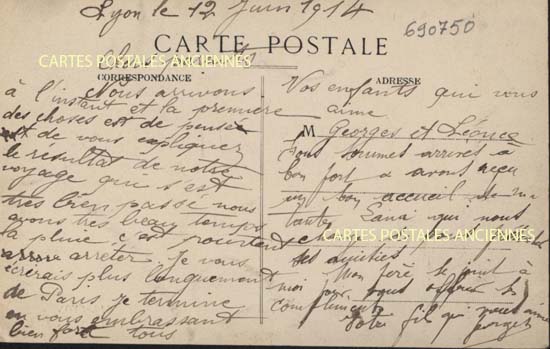 Lyon le 12 Juin 1914
690750
CARTE POSTALE
CARTES POSTALES ANCIENNES
CORRESPONDANCE
ADRESSE
Chers
Nous arrivons
à l'instant et la première
des choses est de
est de vous expliquer
le résultat de notre
voyage que s'est
très bien passé nous
avons très beau temps
la pluie c'est pourtant
arrêter. Je vous
écrirais plus longuement
de Paris je termine
en vous embrassant
bien fort tous
Vos enfants qui vous
aime
M Georges et
nous sommes arrivés à
bon fort a avons reçu
un bon accueil de
tante qui nous
CARTES POSTALES ANCIENNES
Mon père se joint à
moi pour vous
compliments
Votre fil qui vous aime